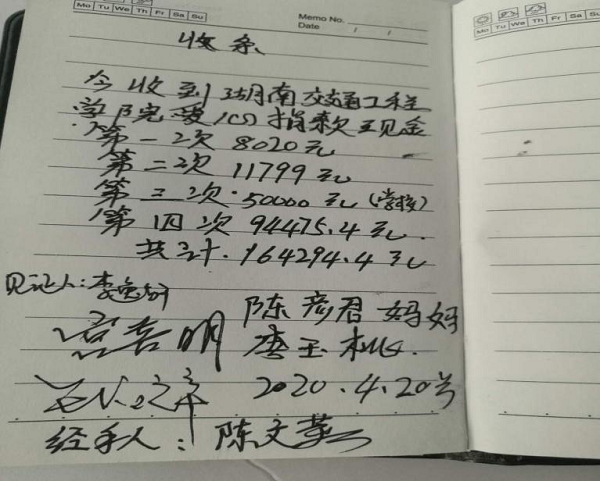 Mo Tu We Th Fr Sa Su
Memo No.
Date / /
Mo Tu We Th Fr Sa Su
收条
今收到湖南交通工程
学院爱心捐款现金
第一次 8020元
第二次 11799元
第三次·50000元(学校)
第四次 94475.4元.
共计·164294.4元
见证人:李
陈彦君妈妈
喜明 李玉
2020.4.20号
经手人:陈文英